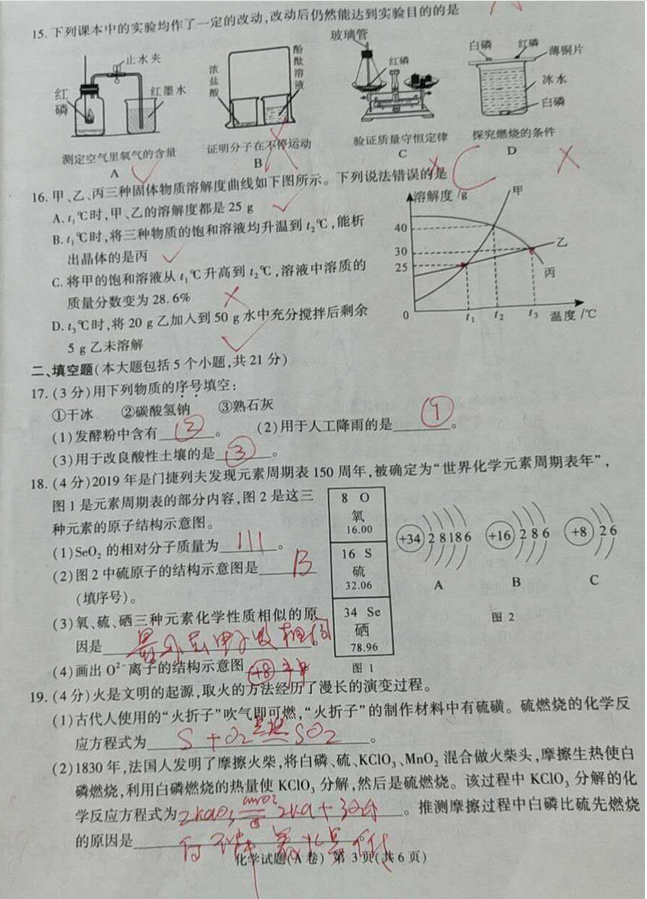 15.下列课本中的实验均作了一定的改动,改动后仍然能达到实验目的的是
止水夹
红磷
红墨水
测定空气里氧气的含量
A
浓盐酸
酚酞溶液
证明分子在不停运动
B
玻璃管
红磷
验证质量守恒定律
C
白磷
红磷
薄铜片
冰水
白磷
探究燃烧的条件
D
C
16.甲、乙、丙三种固体物质溶解度曲线如下图所示。下列说法错误的是
A.t₁℃时,甲、乙的溶解度都是25 g
B.t₁℃时,将三种物质的饱和溶液均升温到t₂℃,能析
出晶体的是丙
C.将甲的饱和溶液从t₁℃升高到t₂℃,溶液中溶质的
质量分数变为28.6%
D.t₃℃时,将20 g乙加入到50 g水中充分搅拌后剩余
5 g乙未溶解
溶解度/g
甲
乙
丙
40
30
25
0
t₁
t₂
t₃
温度/℃
二、填空题(本大题包括5个小题,共21分)
17.(3分)用下列物质的序号填空:
①干冰 ②碳酸氢钠 ③熟石灰
(1)发酵粉中含有②。 (2)用于人工降雨的是①。
(3)用于改良酸性土壤的是③。
18.(4分)2019年是门捷列夫发现元素周期表150周年,被确定为“世界化学元素周期表年”,
图1是元素周期表的部分内容,图2是这三
种元素的原子结构示意图。
(1)SeO₂的相对分子质量为111。
(2)图2中硫原子的结构示意图是B
(填序号)。
(3)氧、硫、硒三种元素化学性质相似的原
因是最外层电子数相同
(4)画出O²⁻离子的结构示意图+8
8 O
氧
16.00
16 S
硫
32.06
34 Se
硒
78.96
图1
+34 2 8 18 6
A
+16 2 8 6
B
+8 2 6
C
图2
19.(4分)火是文明的起源,取火的方法经历了漫长的演变过程。
(1)古代人使用的“火折子”吹气即可燃,“火折子”的制作材料中有硫磺。硫燃烧的化学反
应方程式为S+O₂点燃SO₂。
(2)1830年,法国人发明了摩擦火柴,将白磷、硫、KClO₃、MnO₂混合做火柴头,摩擦生热使白
磷燃烧,利用白磷燃烧的热量使KClO₃分解,然后是硫燃烧。该过程中KClO₃分解的化
学反应方程式为2KClO₃ MnO₂ △ 2KCl+3O₂↑。推测摩擦过程中白磷比硫先燃烧
的原因是
化学试题(A卷) 第3页(共6页)